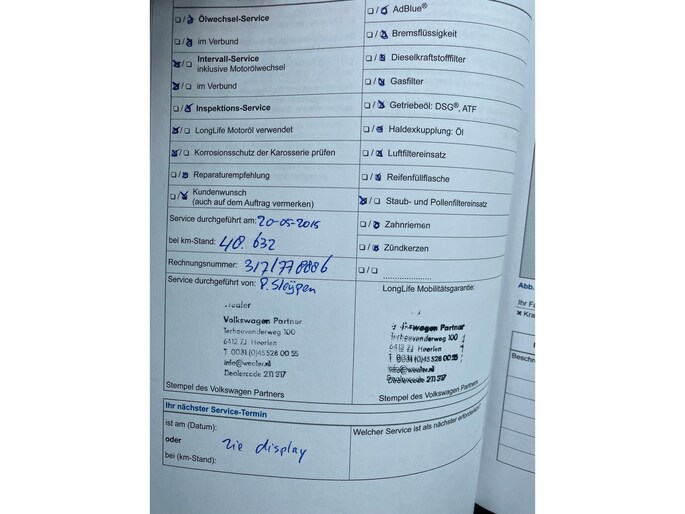 Ölwechsel-Service
im Verbund
Intervall-Service
inklusive Motorölwechsel
im Verbund
Inspektions-Service
LongLife Motoröl verwendet
Korrosionsschutz der Karosserie prüfen
Reparaturempfehlung
Kundenwunsch
(auch auf dem Auftrag vermerken)
Service durchgeführt am: 20-05-2015
bei km-Stand: 48.632
Rechnungsnummer: 317/770006
Service durchgeführt von: P. Sleijpen
Volkswagen Partner
Terhoevenderweg 100
6412 ZJ Heerlen
T 0031 (0)45 528 00 55
info@wealer.nl
Dealercode 211 317
Stempel des Volkswagen Partners
AdBlue®
Bremsflüssigkeit
Dieselkraftstofffilter
Gasfilter
Getriebeöl: DSG®, ATF
Haldexkupplung: Öl
Luftfiltereinsatz
Reifenfüllflasche
Staub- und Pollenfiltereinsatz
Zahnriemen
Zündkerzen
LongLife Mobilitätsgarantie:
Volkswagen Partner
Terhoevenderweg 100
6412 ZJ Heerlen
T 0031 (0)45 528 00 55
info@wealer.nl
Dealercode 211 317
Stempel des Volkswagen Partners
Ihr nächster Service-Termin
ist am (Datum):
oder zie display
bei (km-Stand):
Welcher Service ist als nächster erforderlich?
Abb.